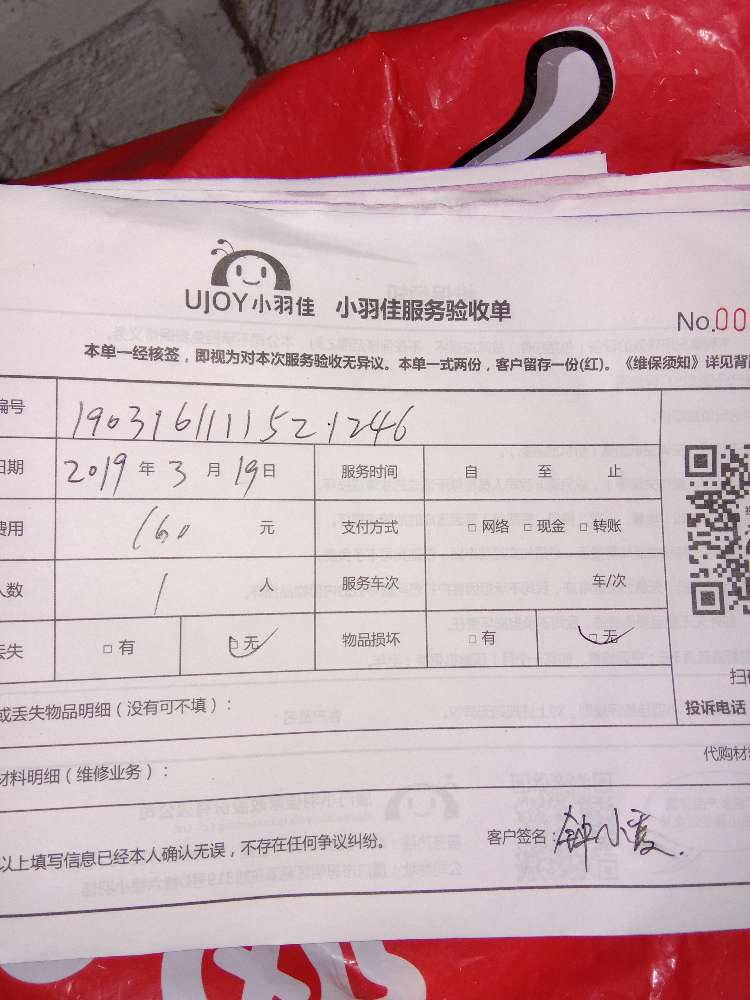 UJOY小羽佳 小羽佳服务验收单
No.00
本单一经核签，即视为对本次服务验收无异议。本单一式两份，客户留存一份(红)。《维保须知》详见背
编号 190316111521246
日期 2019 年 3 月 19 日 服务时间 自 至 止
费用 160 元 支付方式 □ 网络 □ 现金 □ 转账
人数 1 人 服务车次 车/次
丢失 □ 有 □ 无 物品损坏 □ 有 □ 无
或丢失物品明细（没有可不填）：
扫
投诉电话
材料明细（维修业务）：
代购材
以上填写信息已经本人确认无误，不存在任何争议纠纷。 客户签名：钟小霞